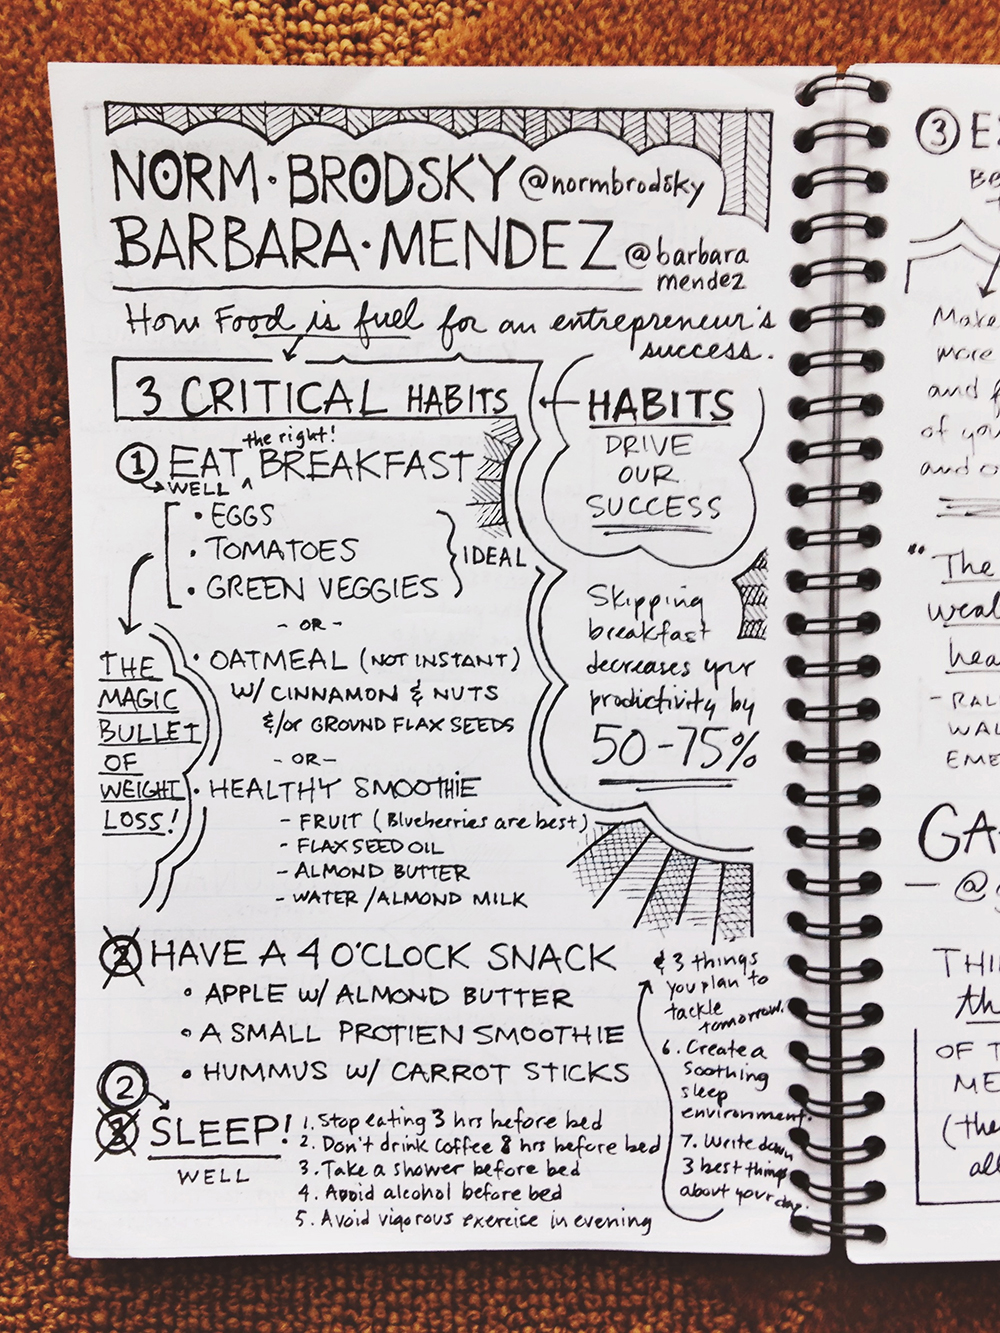 NORM · BRODSKY @normbrodsky
BARBARA · MENDEZ @barbara
mendez
How Food is fuel for an entrepreneur's
success.
3 CRITICAL HABITS
HABITS
DRIVE
OUR
SUCCESS
the right!
① EAT ^ BREAKFAST
WELL
• EGGS
• TOMATOES
• GREEN VEGGIES
IDEAL
- OR -
• OATMEAL (NOT INSTANT)
W/ CINNAMON & NUTS
&/or GROUND FLAX SEEDS
- OR -
• HEALTHY SMOOTHIE
- FRUIT (Blueberries are best)
- FLAXSEED OIL
- ALMOND BUTTER
- WATER / ALMOND MILK
THE
MAGIC
BULLET
OF
WEIGHT
LOSS!
Skipping
breakfast
decreases your
productivity by
50-75%
2 HAVE A 4 O'CLOCK SNACK
• APPLE W/ ALMOND BUTTER
• A SMALL PROTIEN SMOOTHIE
• HUMMUS W/ CARROT STICKS
②
3 SLEEP!
WELL
1. Stop eating 3 hrs before bed
2. Don't drink coffee 8 hrs before bed
3. Take a shower before bed
4. Avoid alcohol before bed
5. Avoid vigorous exercise in evening
6. Create a
soothing
sleep
environment.
7. Write down
3 best things
about your day.
& 3 things
you plan to
tackle
tomorrow.
③ E
BE
Make
more
and
of you
and
"The
weal
hea
- RAL
WAL
EME
GA
— @
THI
th
OF T
ME
(the
all